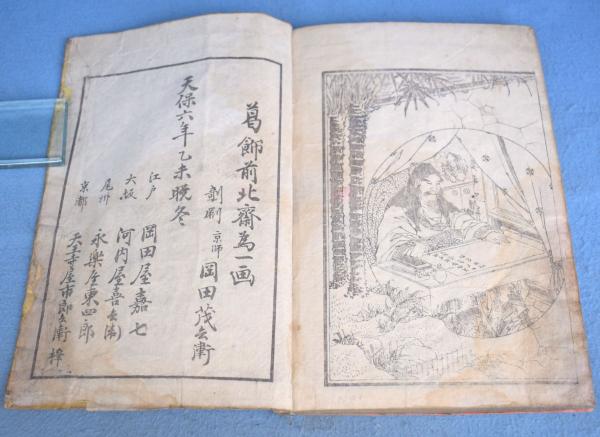 葛飾前北齋為一画
剞劂 京師 岡田茂兵衛
天保六年乙未晩冬
江戸 岡田屋嘉七
大坂 河内屋喜兵衛
尾州 永樂屋東四郎
京都 天王寺屋市郎兵衛 梓